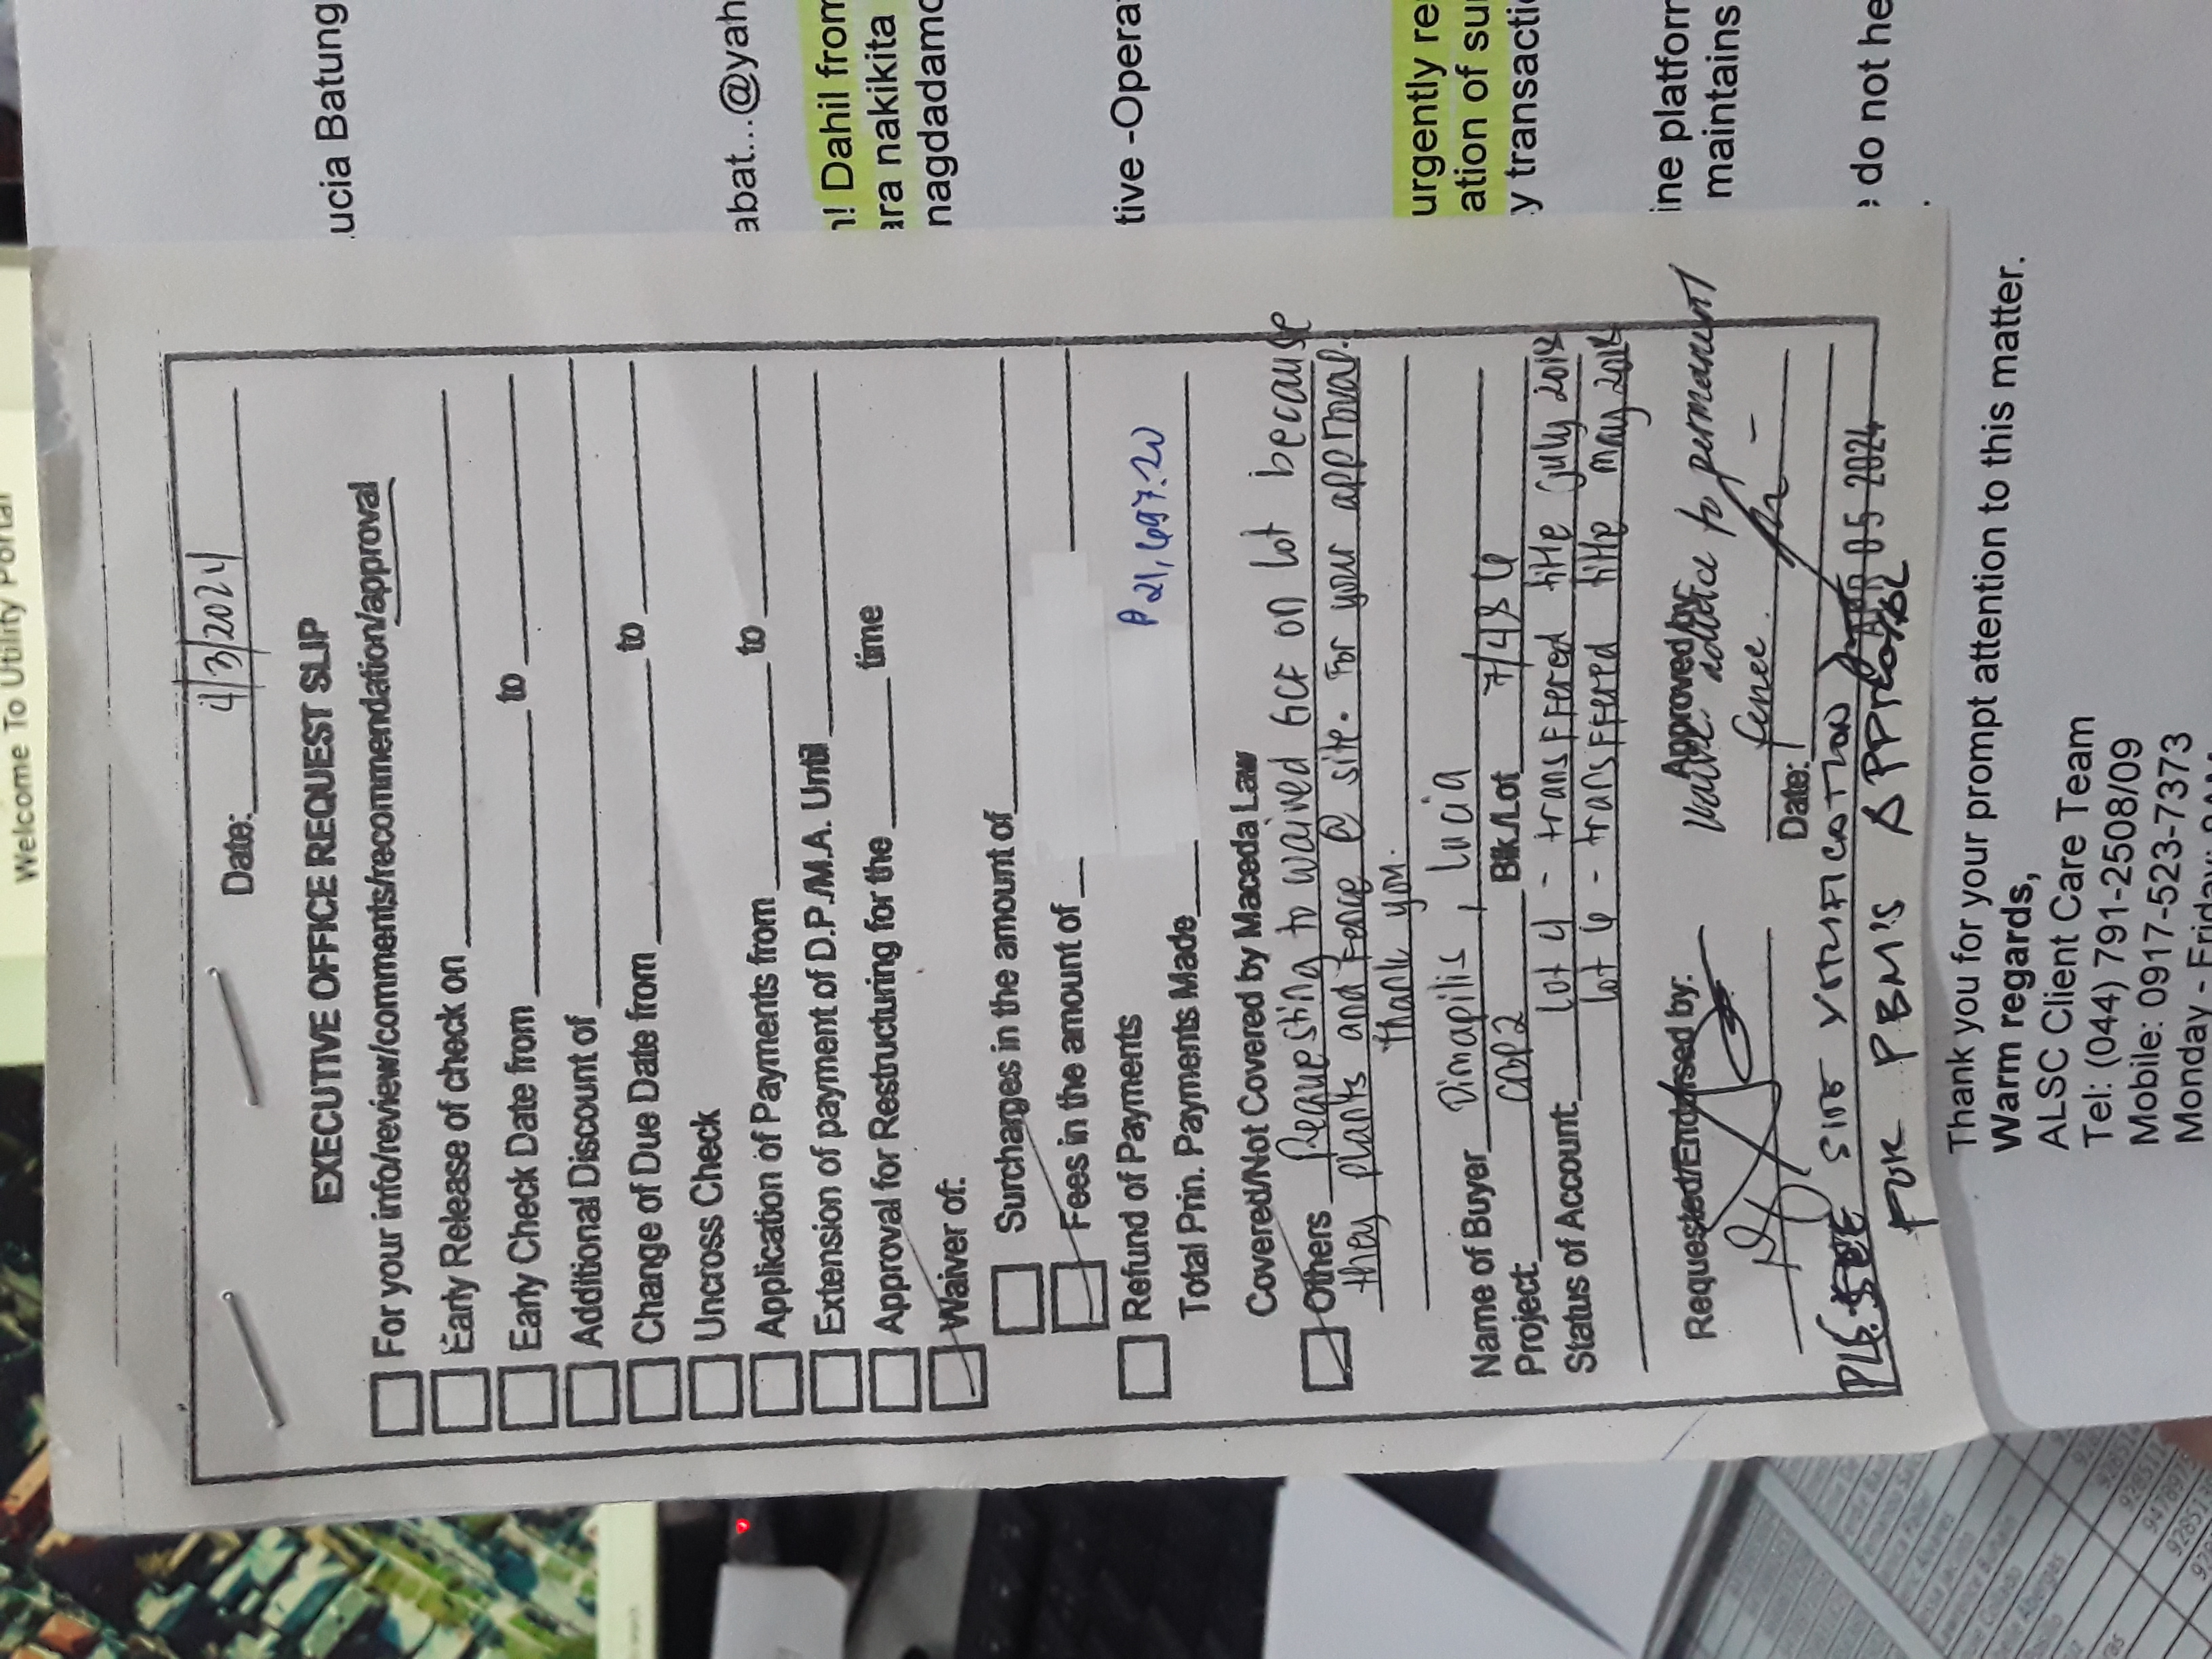 Welcome To Utility Portal
Date: 4/3/2024
EXECUTIVE OFFICE REQUEST SLIP
For your info/review/comments/recommendation/approval
Early Release of check on
Early Check Date from to
Additional Discount of
Change of Due Date from to
Uncross Check
Application of Payments from to
Extension of payment of D.P./M.A. Until
Approval for Restructuring for the time
Waiver of:
Surcharges in the amount of
Fees in the amount of
Refund of Payments
₱21,697.20
Total Prin. Payments Made
Covered/Not Covered by Maceda Law
Others Requesting to waived GCF on lot because
they plants and fence @ site. For your approval.
thank you.
Name of Buyer Dimapilis, Lucia
Project: CDP2 Blk./Lot 7/4 & 6
Status of Account: lot 4 - transffered title july 2018
lot 6 - transffered title may 2018
Requested/Endorsed by: Approved by:
advice to permanent
fence.
Date:
PLS. SEE SITE VERIFICATION
APR 05 2024
FOR PBM'S APPROVAL
ucia Batung
abat...@yah
n! Dahil from
ara nakikita
nagdadamo
tive -Opera
urgently re
ation of su
y transacti
ine platform
maintains
e do not he
Thank you for your prompt attention to this matter.
Warm regards,
ALSC Client Care Team
Tel: (044) 791-2508/09
Mobile: 0917-523-7373
Monday - Friday: 8AM